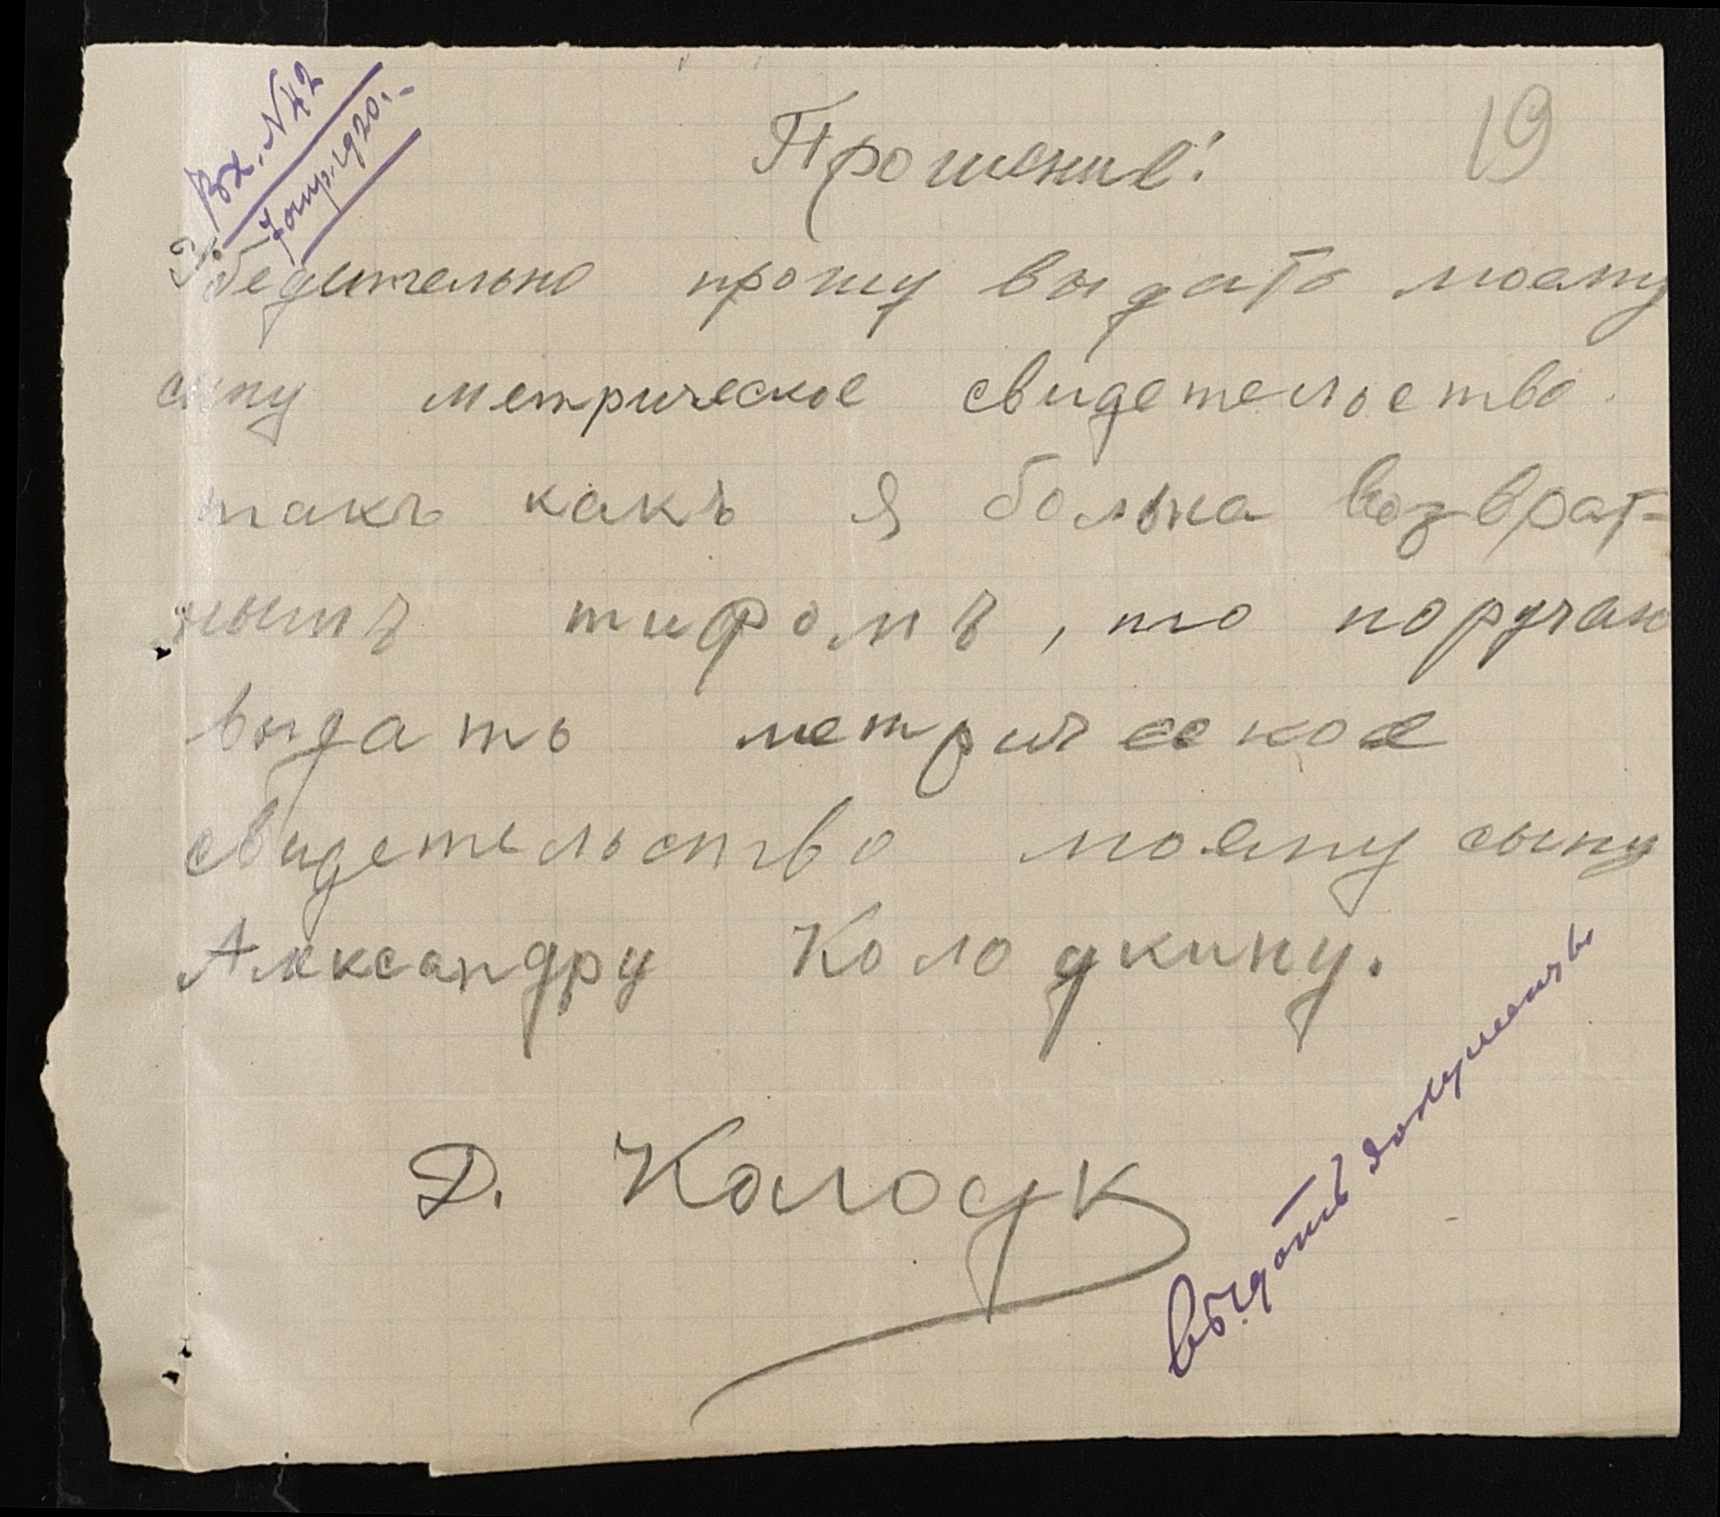 Вх. N 42
7 апр. 1920.-
19
Прошение!
Убедительно прошу выдать моему
сыну метрическое свидетельство.
такъ какъ я больна возврат=
нымъ тифомъ, то поручаю
выдать метрическое
свидетельство моему сыну
Александру Колодкину.
Д. Колодк
Выдать документы